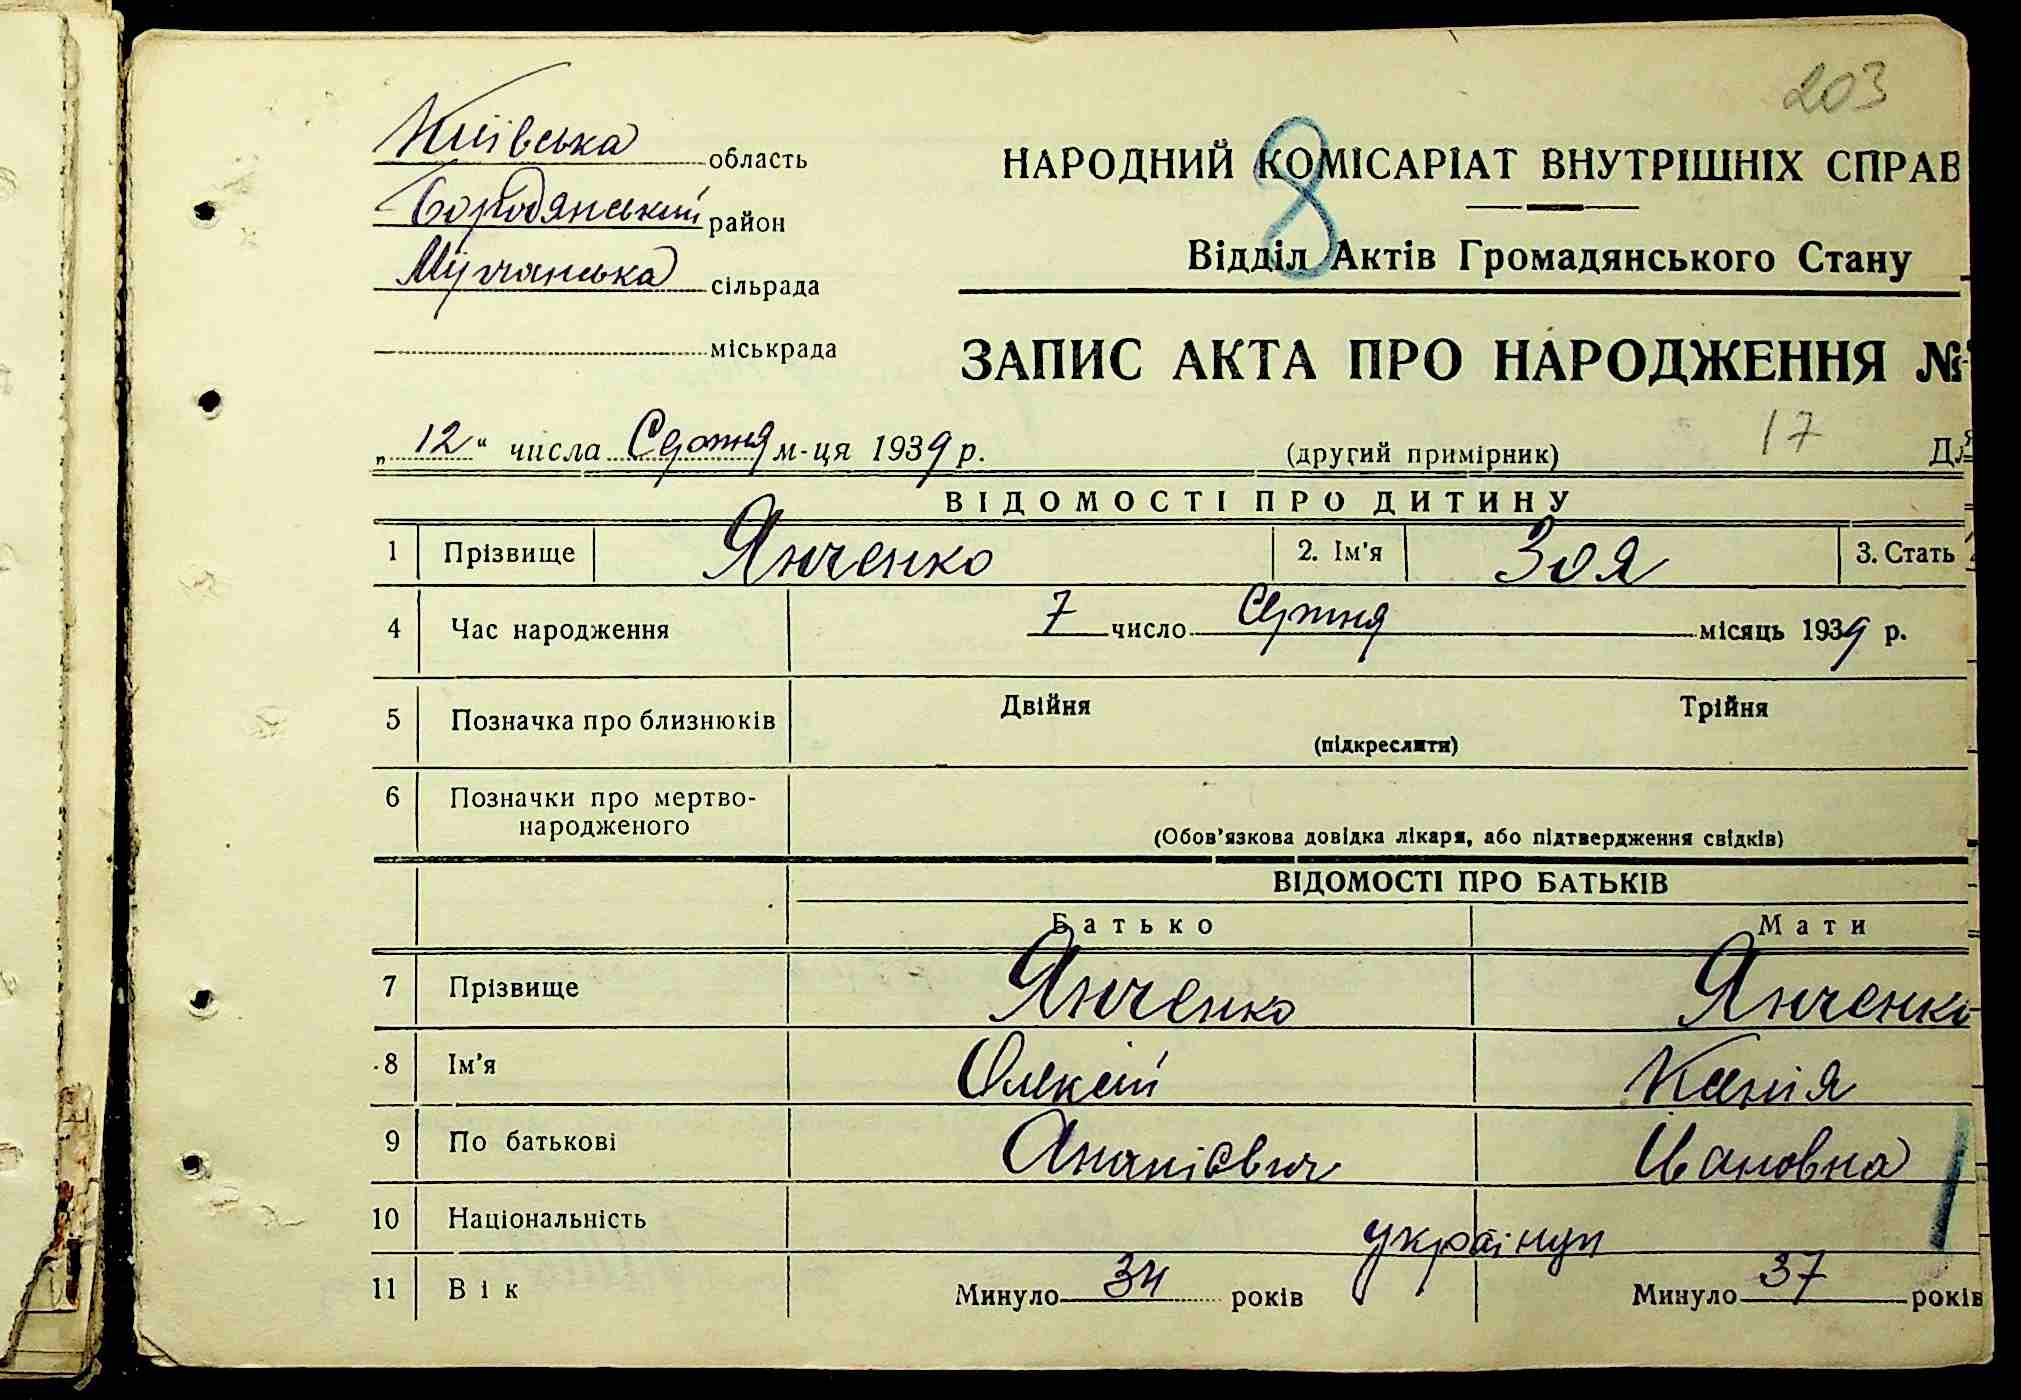 203
Київська область
НАРОДНИЙ КОМІСАРІАТ ВНУТРІШНІХ СПРАВ
8
Бородянський район
Відділ Актів Громадянського Стану
Мірчанська сільрада
міськрада
ЗАПИС АКТА ПРО НАРОДЖЕННЯ №
„12" числа Серпня м-ця 1939 р. (другий примірник) 17
ВІДОМОСТІ ПРО ДИТИНУ
1 Прізвище Янченко 2. Ім'я Зоя 3. Стать
4 Час народження 7 число Серпня місяць 1939 р.
5 Позначка про близнюків Двійня Трійня
(підкреслити)
6 Позначки про мертво-
народженого
(Обов'язкова довідка лікаря, або підтвердження свідків)
ВІДОМОСТІ ПРО БАТЬКІВ
Батько Мати
7 Прізвище Янченко Янченко
8 Ім'я Олексій Ксенія
9 По батькові Ананієвич Івановна
10 Національність українці
11 Вік Минуло 34 років Минуло 37 років